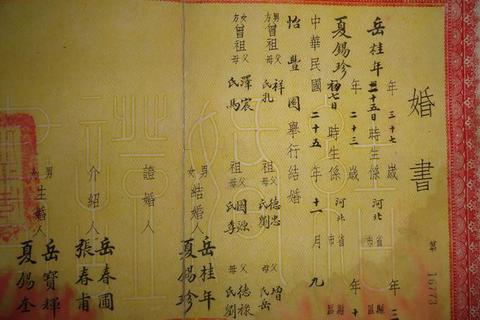 婚書
第 16773
岳桂年 年三十七歲 二
十五日 時生係河北省市縣
夏錫珍 年二十三歲 十
初七日 時生係河北省市縣
中華民國二十五年十一月九
怡豐園舉行結婚
男方曾祖父祥 祖父德忠 父增
母氏孔 母氏劉 母氏岳
女方曾祖父澤宸 祖父國源 父德祿
母氏馬 母氏李 母氏劉
男女結婚人 岳桂年
夏錫珍
證婚人
介紹人 岳春圃
張春甫
男女主婚人 岳寶輝
夏錫奎